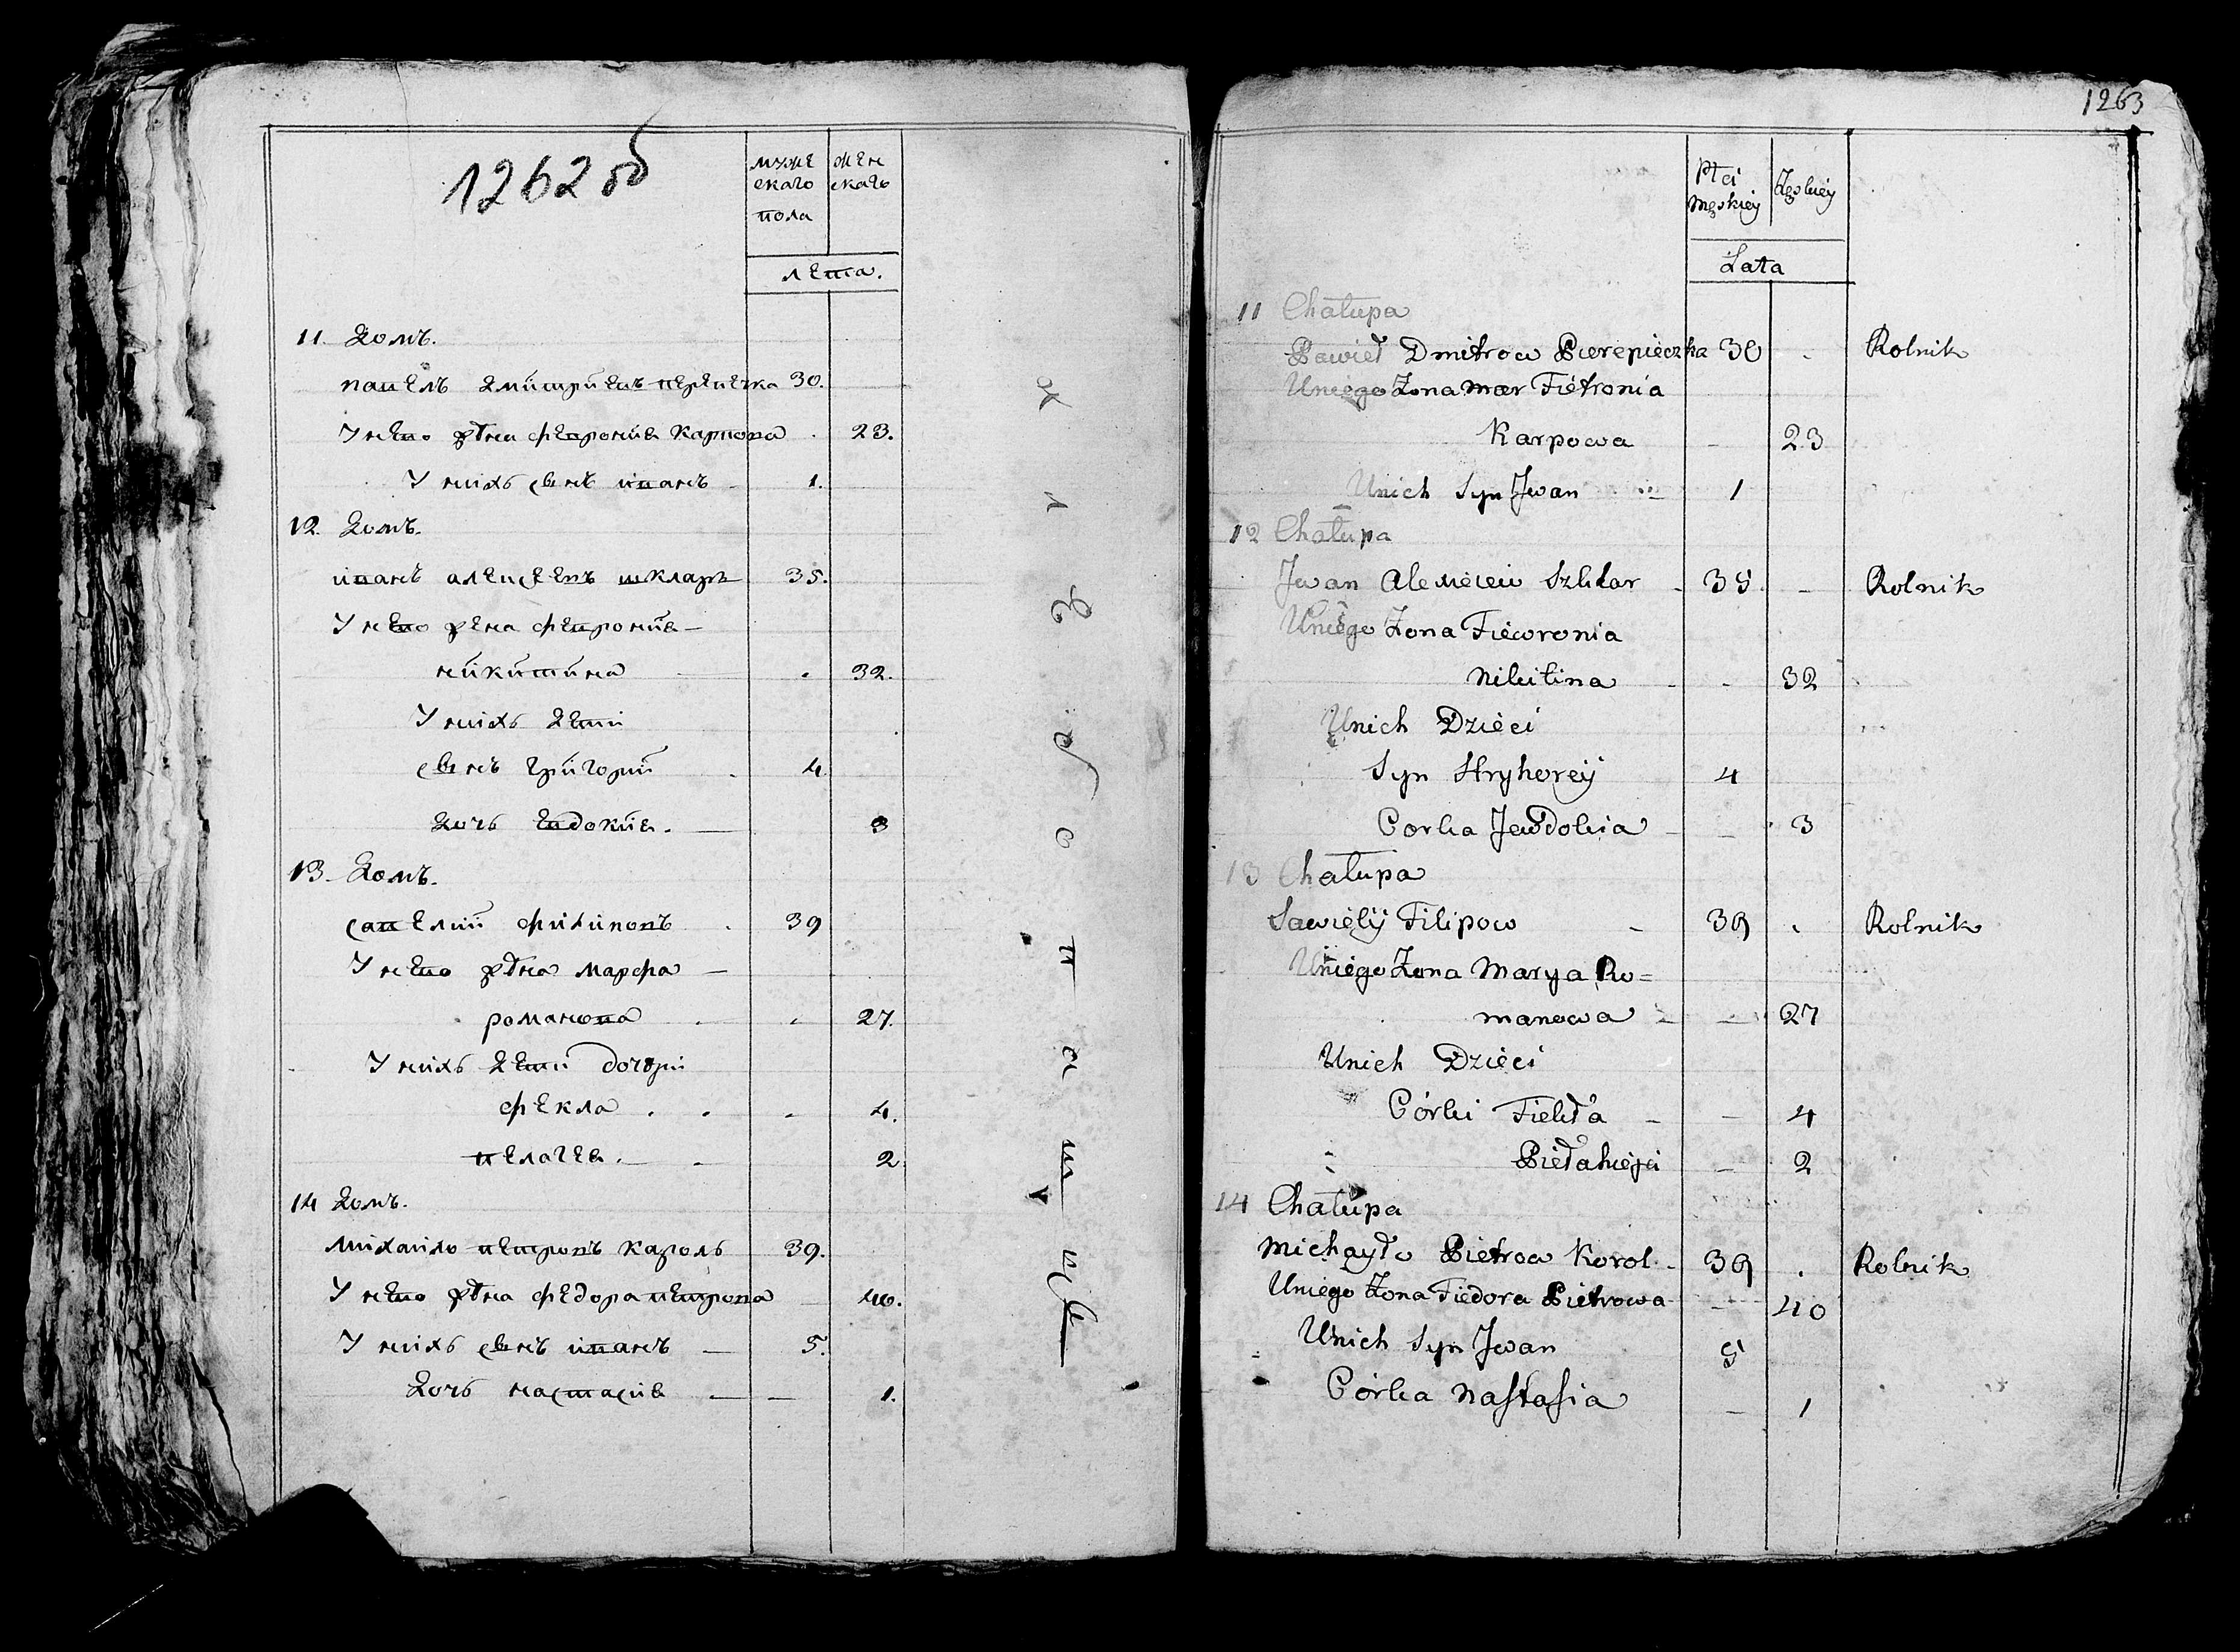 1262 об
муже
скаго
пола
жен
скаго
лета.
11. Домъ.
павелъ дмитриевъ перепечка 30.
У него жена феврониа Карпова . 23.
У нихъ сынъ иванъ - 1.
12. Домъ.
иванъ алексеевъ шкларъ 35.
У него жена феврониа —
никитина . 32.
У нихъ дети
сынъ григорий . 4.
дочь евдокиа. — 3
13. Домъ.
савелий филиповъ . 39
У него жена марфа —
романова . - 27.
У нихъ дети дочери
фекла . . - 4.
пелагеа. — - 2.
14 Домъ.
михайло петровъ кароль 39.
У него жена федора петрова — 40.
У нихъ сынъ иванъ — 5.
Дочь настасиа — — 1.
1263
Płci
męskiey
Żęskiey
Lata
11 Chałupa
Pawieł Dmitrow Pierepieczka 30 . Rolnik
Uniego Żona
Karpowa - 23
Unich Syn Jwan - 1
12 Chałupa
Jwan Szklar - 35. - Rolnik
Uniego Żona Fiewronia
Nikitina - - 32
Unich Dzieci
Syn Hryhorey 4
Corka Jewdokia - - 3
13 Chałupa
Sawieliy Filipow - 39 . Rolnik
Uniego Żona Marya Ro=
manowa - - 27
Unich Dzieci
Córki Fiekła - - 4
- 2
14 Chałupa
Michayło Pietrow Korol - 39 . Rolnik
Uniego Żona Fiedora Pietrowa - 40
Unich Syn Jwan 5
Córka Nastasia - 1